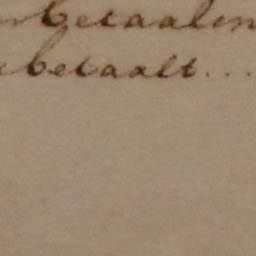 betaalen
betaalt...